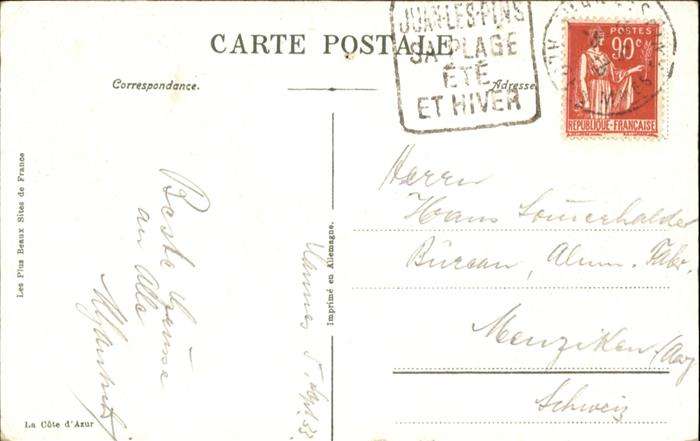 CARTE POSTALE
JUAN-LES-PINS
SA PLAGE
ÉTÉ
ET HIVER
POSTES
90c
REPUBLIQUE-FRANÇAISE
Correspondance.
Adresse
Les Plus Beaux Sites de France
La Côte d'Azur
Imprimé en Allemagne.
Beste Grüsse
an Alle
5 Sept 33
Herrn
Hans Sommerhalder
Büreau, Alum. Fabr.
Menziken (Aarg
Schweiz